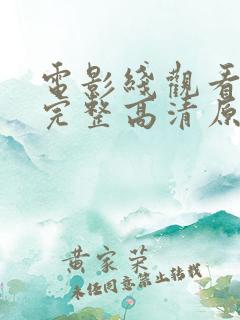 電影綫觀看
完整高清原
黄家荣
未经同意禁止转载